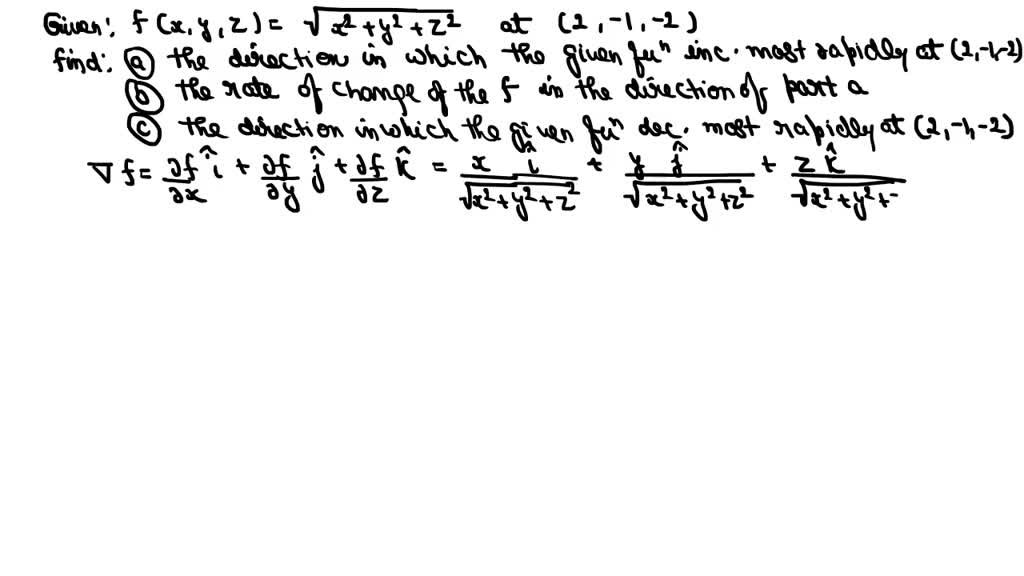 Given: f(x, y, z) = √(x² + y² + z²) at (2, -1, -2)
find: ⓐ the direction in which the given fuⁿ inc. most rapidly at (2, -1, -2)
ⓑ the rate of change of the f in the direction of part a
ⓒ the direction in which the given fuⁿ dec. most rapidly at (2, -1, -2)
∇f = ∂f/∂x î + ∂f/∂y ĵ + ∂f/∂z k̂ = x î/√(x² + y² + z²) + y ĵ/√(x² + y² + z²) + z k̂/√(x² + y² +